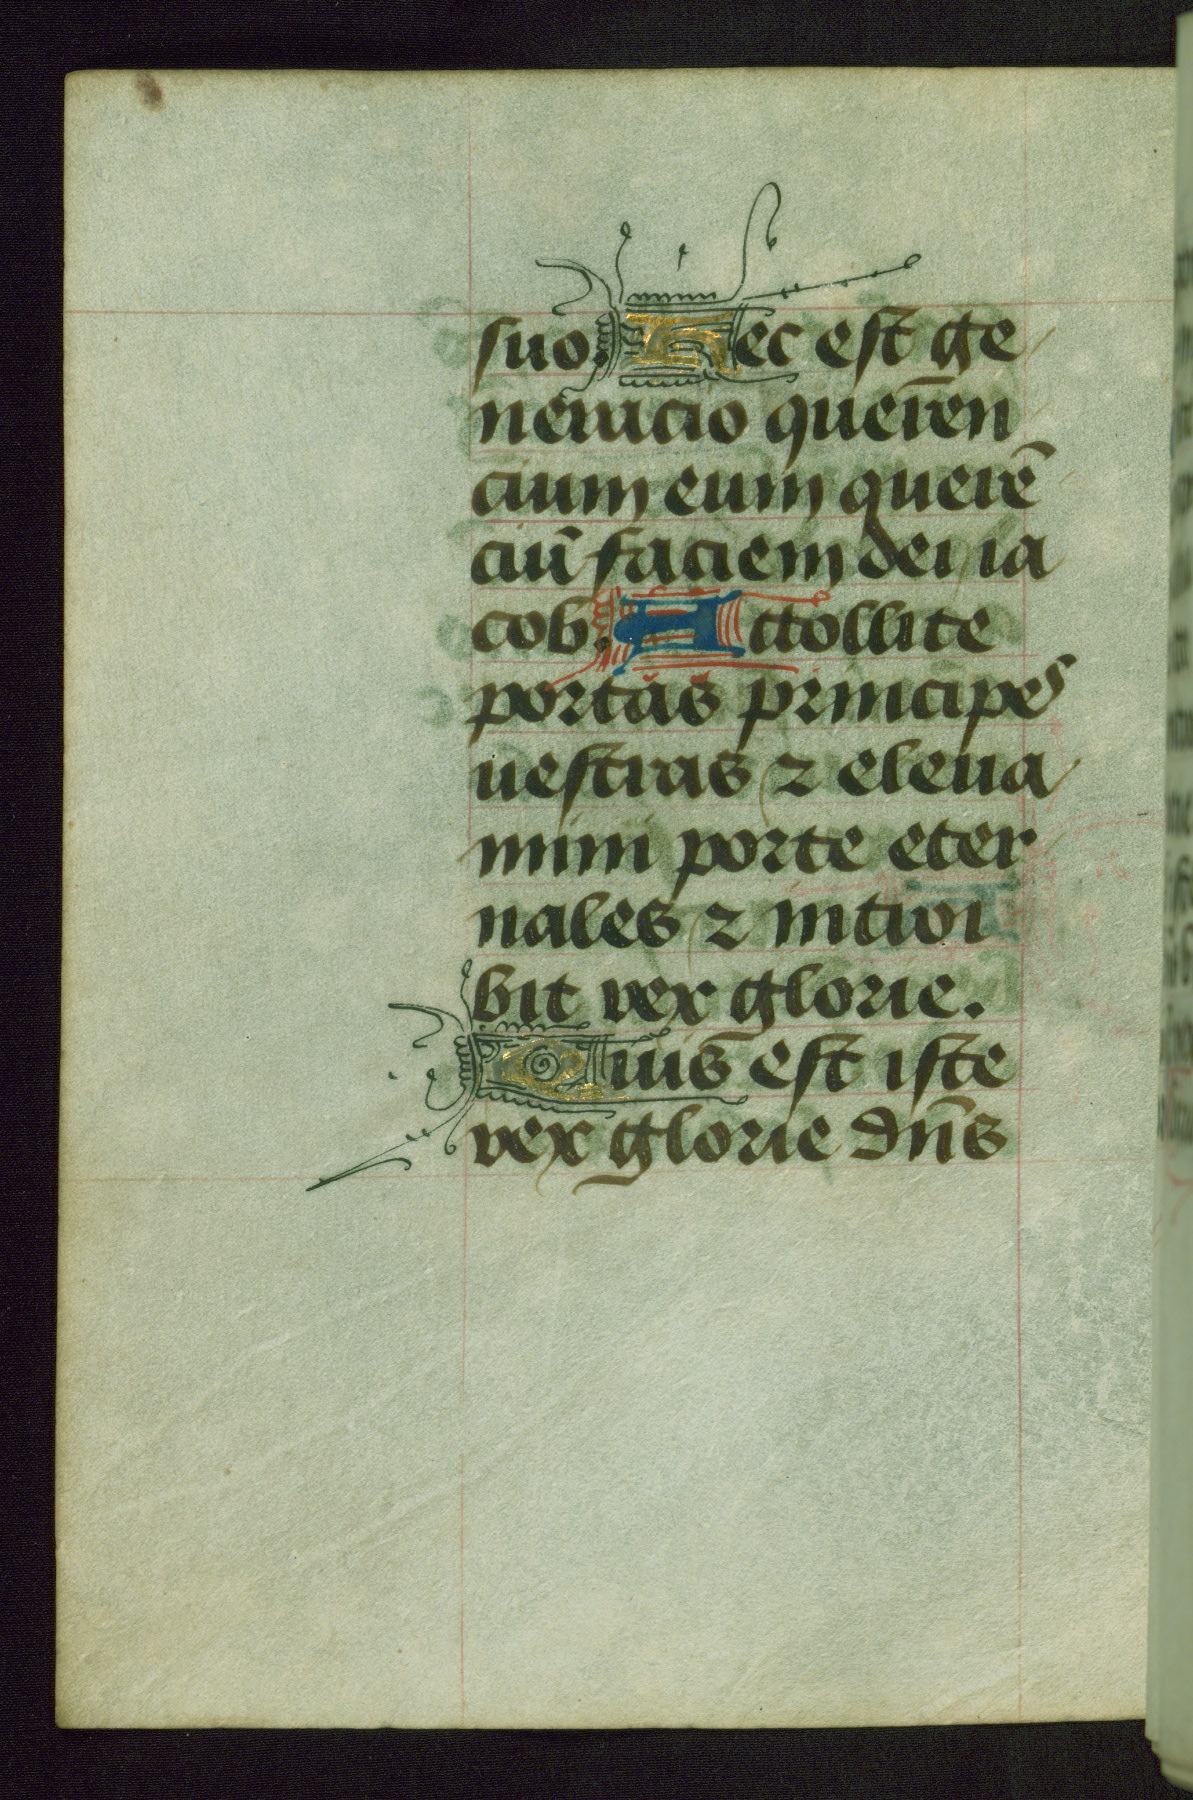 suo. Hec est ge
neracio queren
cium eum querē
ciū faciem dei ia
cob. Attollite
portas principes
uestras ⁊ eleua
mini porte eter
nales ⁊ introi
bit rex glorie.
Quis est iste
rex glorie dn̄s